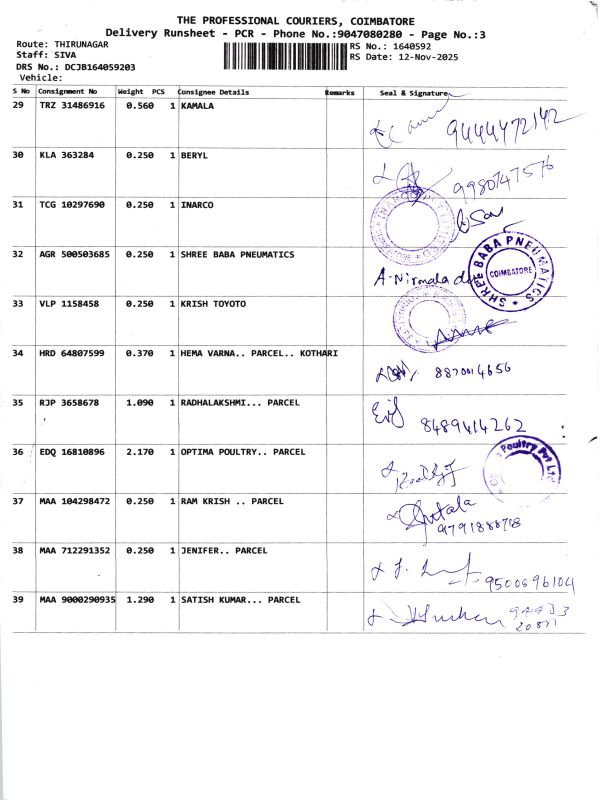 THE PROFESSIONAL COURIERS, COIMBATORE
Delivery Runsheet - PCR - Phone No.:9047080280 - Page No.:3
Route: THIRUNAGAR
RS No.: 1640592
Staff: SIVA
RS Date: 12-Nov-2025
DRS No.: DCJB164059203
Vehicle:
S No Consignment No Weight PCS Consignee Details Remarks Seal & Signature
29 TRZ 31486916 0.560 1 KAMALA
9444472142
30 KLA 363284 0.250 1 BERYL
9980747576
31 TCG 10297690 0.250 1 INARCO
32 AGR 500503685 0.250 1 SHREE BABA PNEUMATICS
A-Nirmala
SHREE BABA PNEUMATICS
COIMBATORE
33 VLP 1158458 0.250 1 KRISH TOYOTO
34 HRD 64807599 0.370 1 HEMA VARNA.. PARCEL.. KOTHARI
8870014656
35 RJP 3658678 1.090 1 RADHALAKSHMI... PARCEL
8489414262
36 EDQ 16810896 2.170 1 OPTIMA POULTRY.. PARCEL
Poultry Pvt Ltd
37 MAA 104298472 0.250 1 RAM KRISH .. PARCEL
9791888718
38 MAA 712291352 0.250 1 JENIFER.. PARCEL
9500696104
39 MAA 9000290935 1.290 1 SATISH KUMAR... PARCEL
94433